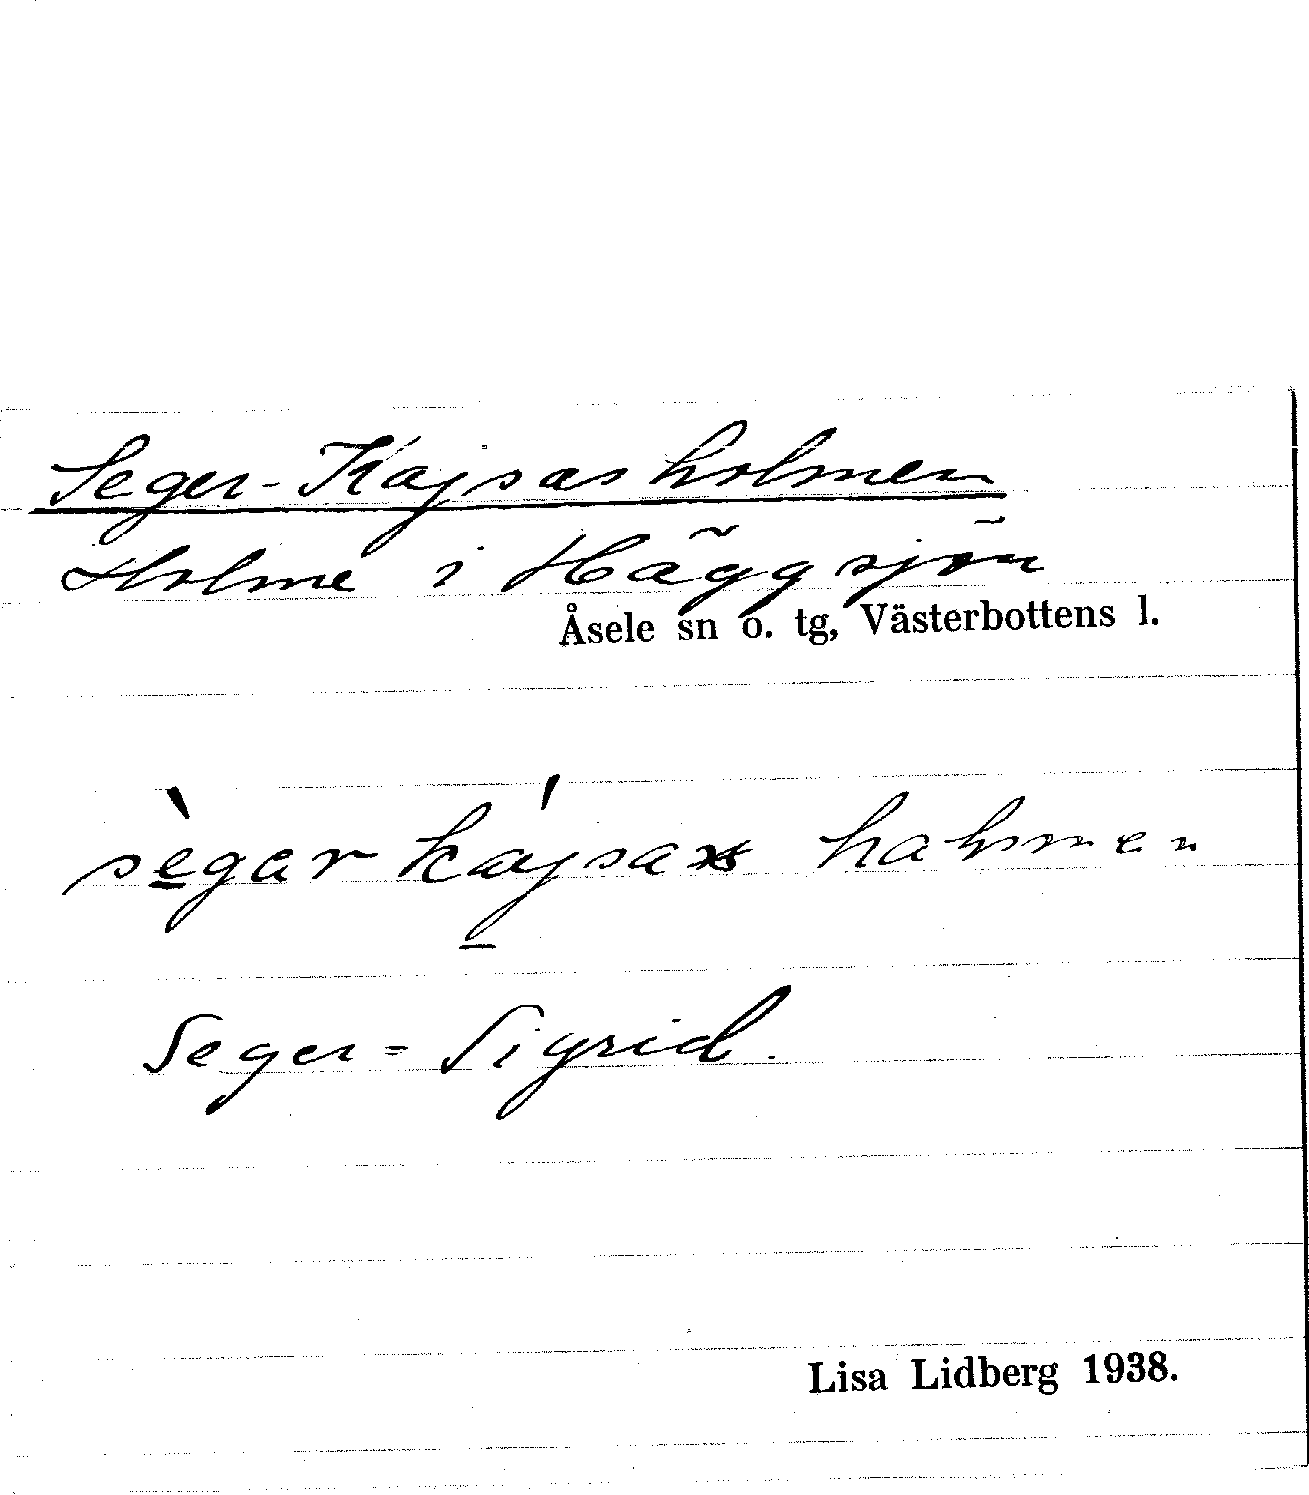 Seger-Kajsasholmen
Holme i Häggsjön
Åsele sn o. tg, Västerbottens l.
sègar kájsas hahmen
Seger = Sigrid.
Lisa Lidberg 1938.